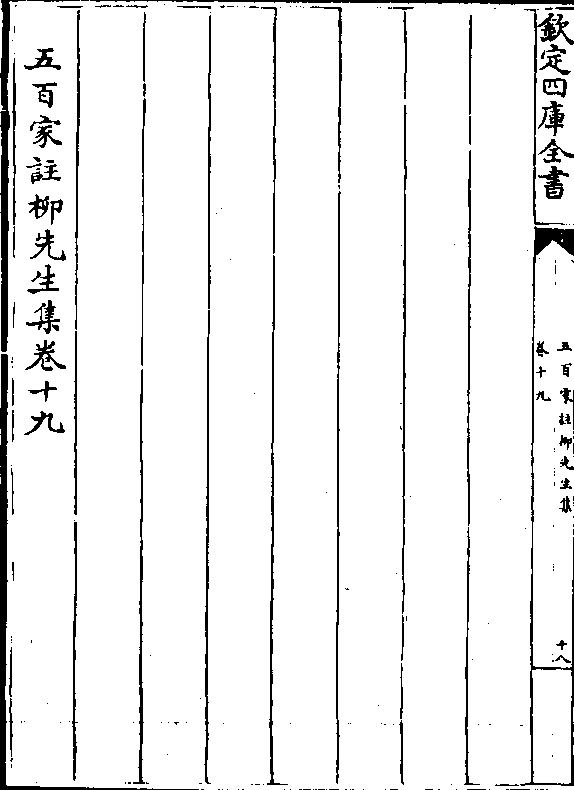 欽定四庫全書
五百家註柳先生集
卷十九
十八
五百家註柳先生集卷十九